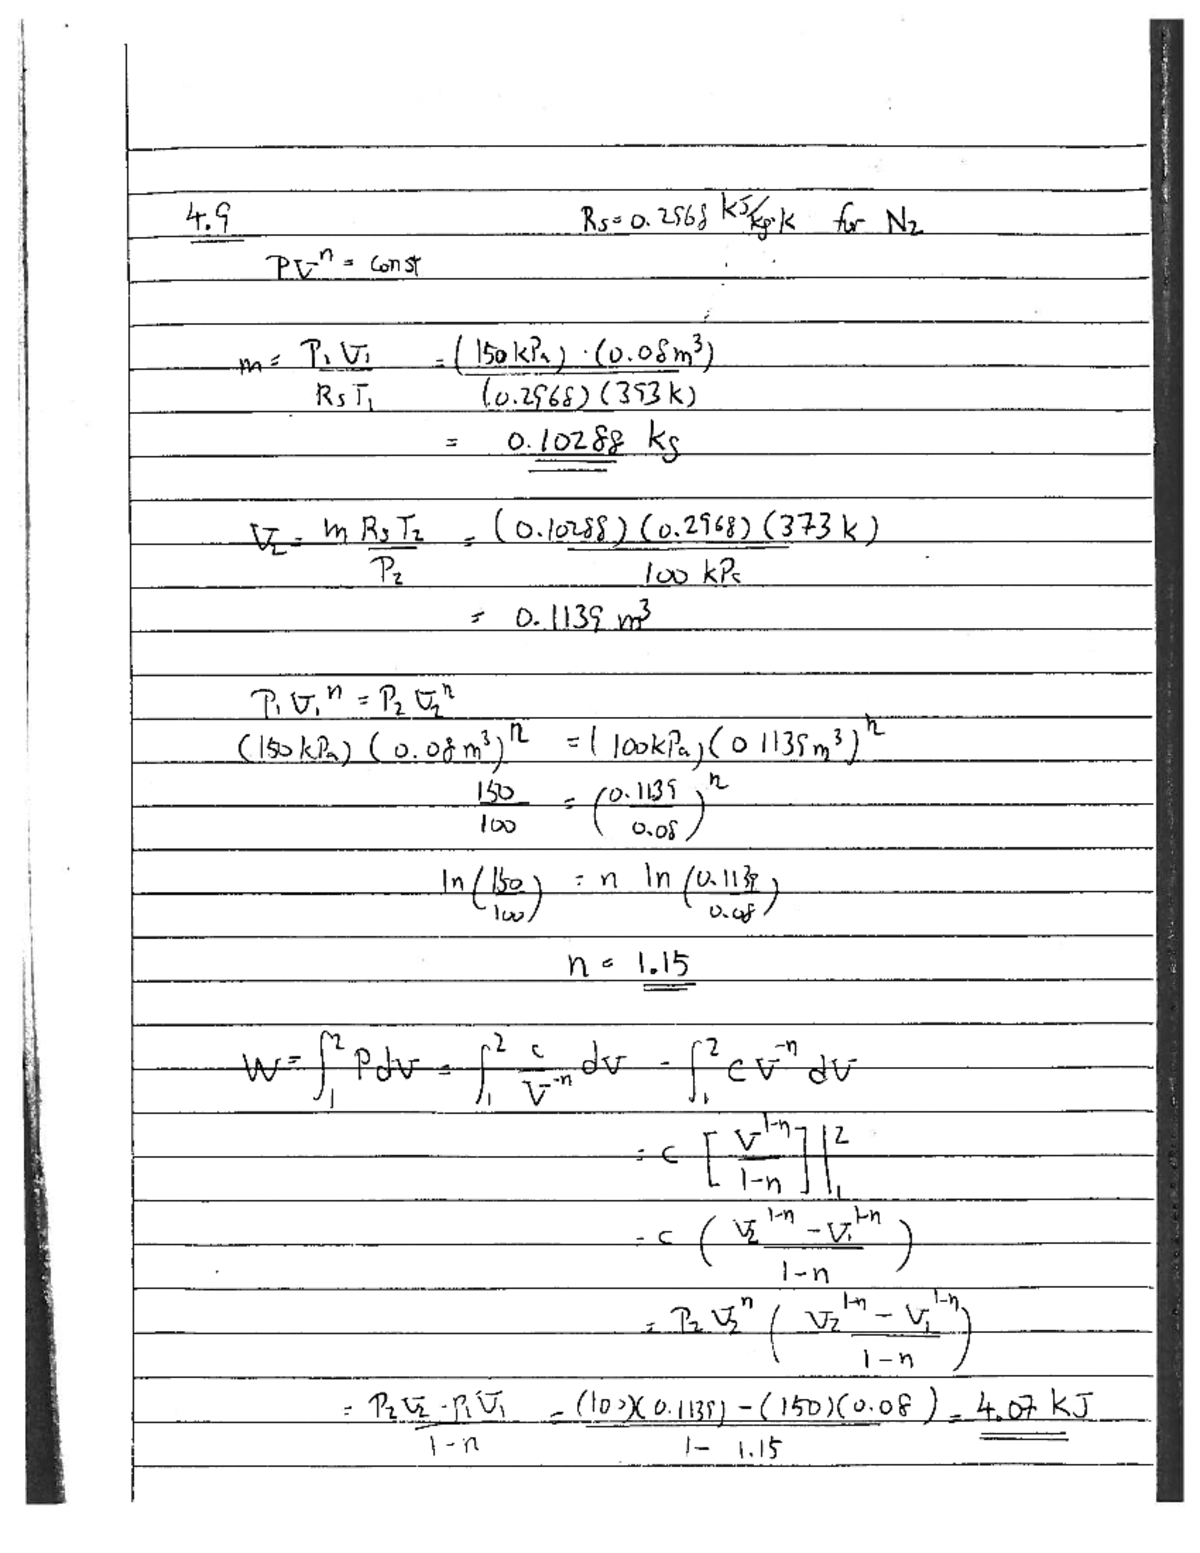 4.9 Rs = 0.2968 kJ/kg·K for N2
PV^n = const
m = P1 V1 / Rs T1 = (150 kPa) · (0.08 m^3) / (0.2968) (393 K)
= 0.10288 kg
V2 = m Rs T2 / P2 = (0.10288) (0.2968) (373 K) / 100 kPa
= 0.1139 m^3
P1 V1^n = P2 V2^n
(150 kPa) (0.08 m^3)^n = (100 kPa) (0.1139 m^3)^n
150/100 = (0.1139/0.08)^n
ln (150/100) = n ln (0.1139/0.08)
n = 1.15
W = ∫1^2 P dV = ∫1^2 c/V^-n dV - ∫1^2 C V^-n dV
= C [V^1-n / 1-n] |1^2
= C (V2^1-n - V1^1-n / 1-n)
= P2 V2^n (V2^1-n - V1^1-n / 1-n)
= P2 V2 - P1 V1 / 1-n = (100)(0.1139) - (150)(0.08) / 1 - 1.15 = 4.07 kJ